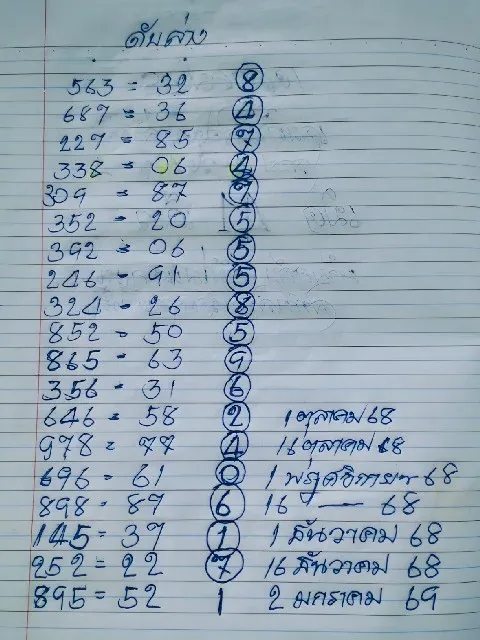 ดับล่าง
563 = 32 8
687 = 36 4
227 = 85 7
338 = 06 4
309 = 87 7
352 = 20 5
392 = 06 5
246 - 91 5
324 - 26 8
852 - 50 5
865 - 63 9
356 - 31 6
646 = 58 2 1 ตุลาคม 68
978 = 77 4 16 ตุลาคม 68
696 = 61 0 1 พฤศจิกายน 68
898 = 87 6 16 — 68
145 = 37 1 1 ธันวาคม 68
252 = 22 7 16 ธันวาคม 68
895 = 52 1 2 มกราคม 69